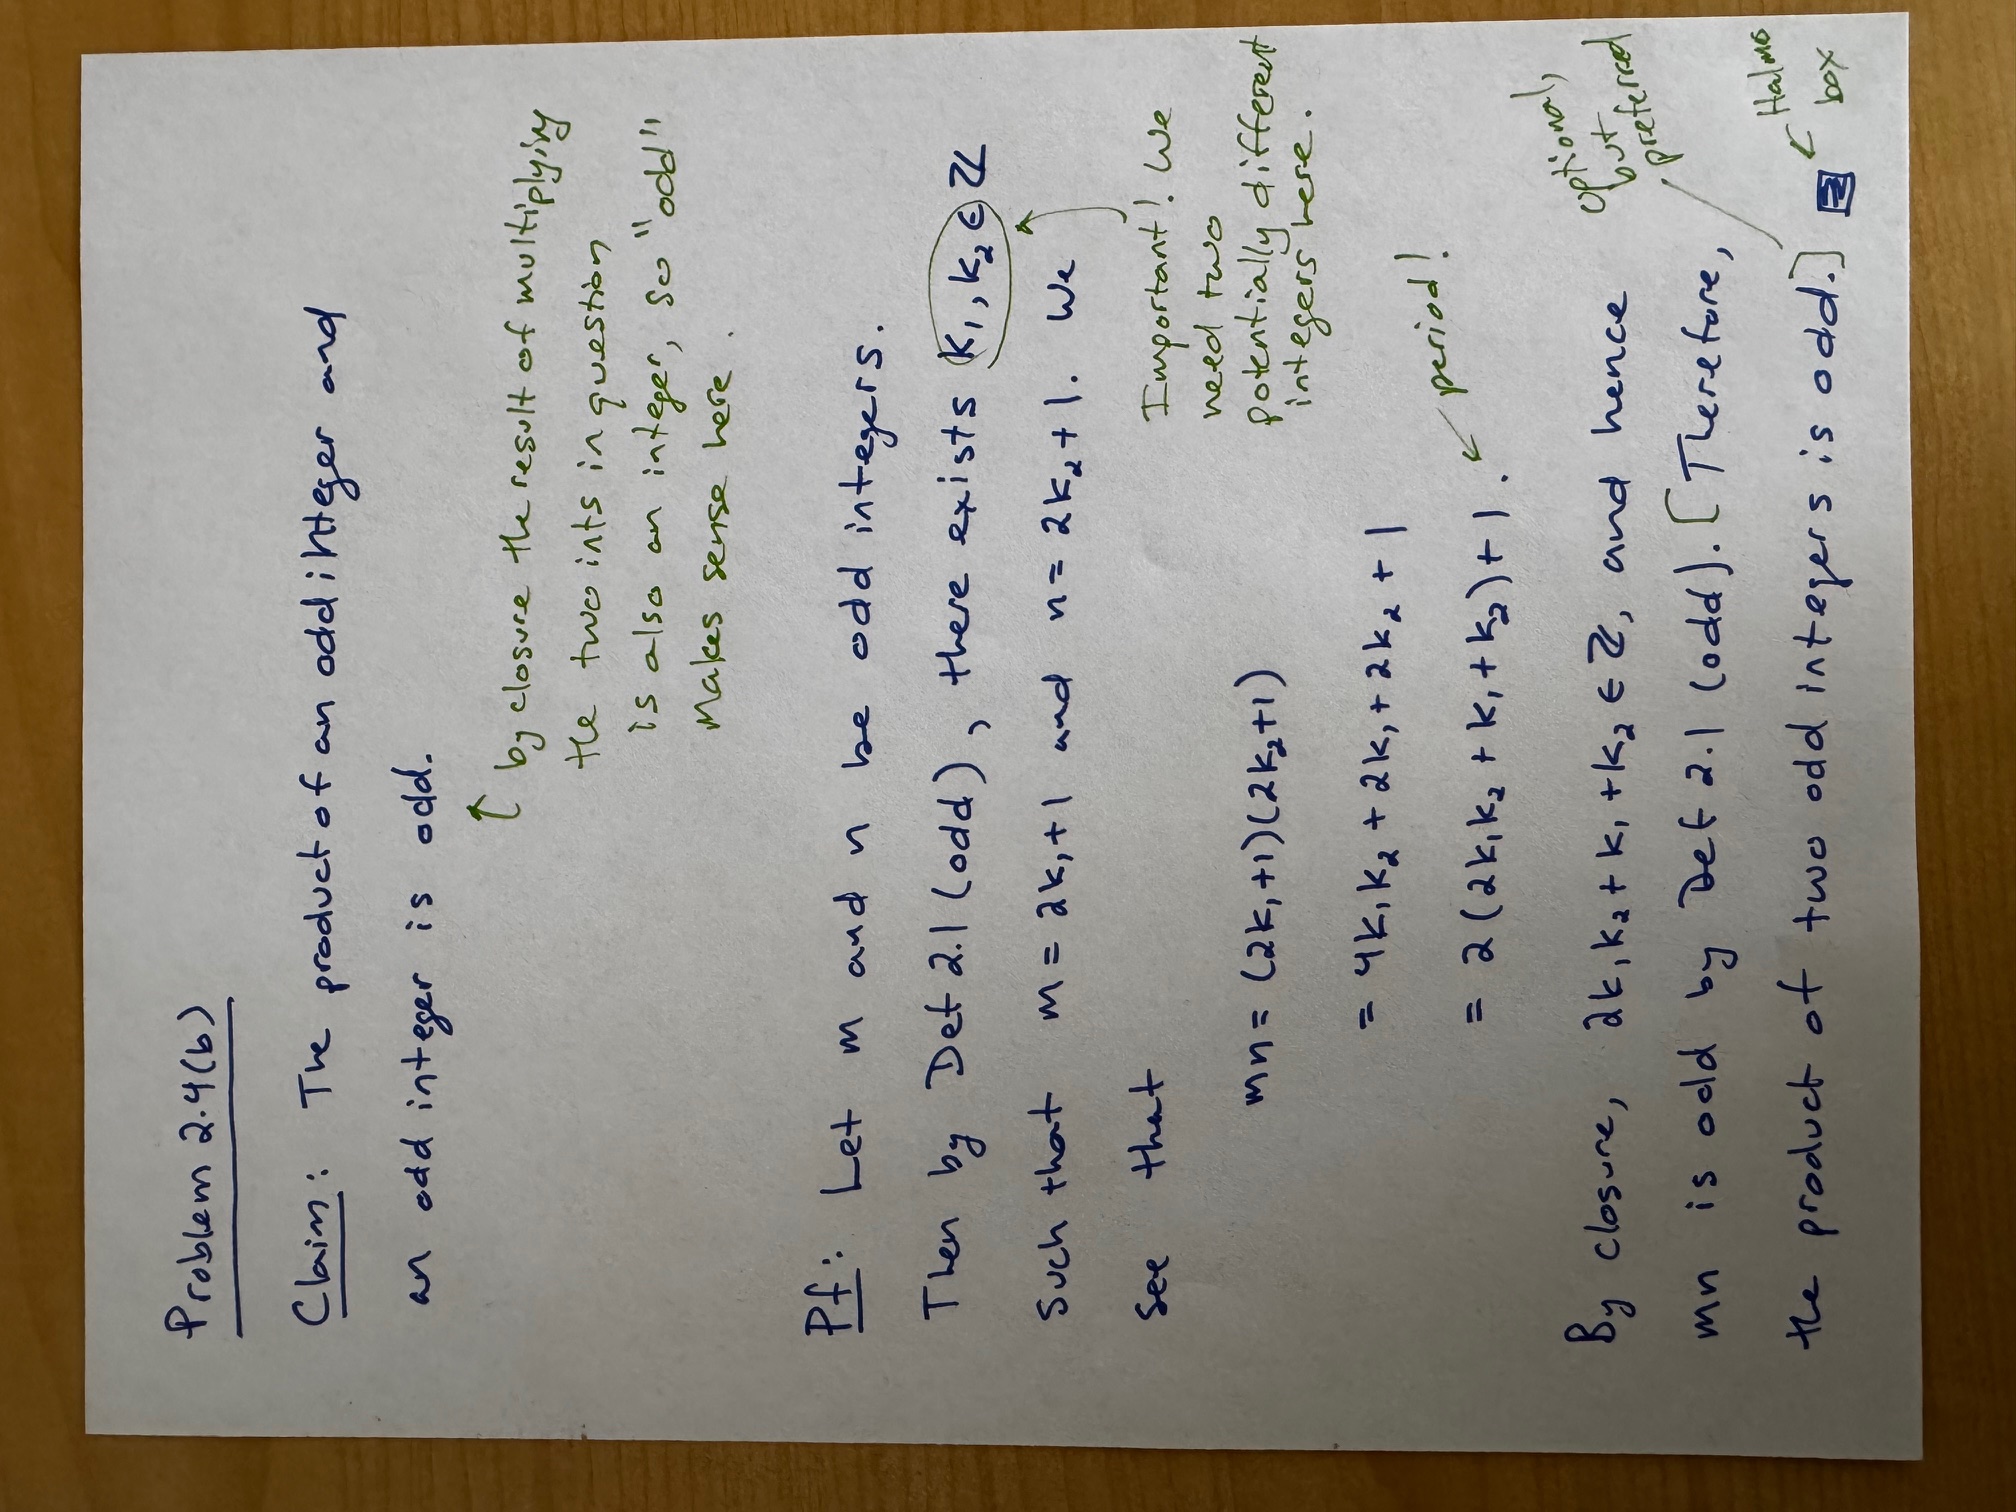 Problem 2.4(b)
Claim: The product of an odd integer and
an odd integer is odd.
by closure the result of multiplying
the two ints in question
is also an integer, so "odd"
makes sense here.
Pf: Let m and n be odd integers.
Then by Def 2.1 (odd), there exists k₁, k₂ ∈ ℤ
such that m = 2k₁+1 and n = 2k₂+1. We
see that
Important! We
need two
potentially different
integers here.
mn = (2k₁+1)(2k₂+1)
= 4k₁k₂ + 2k₁ + 2k₂ + 1
= 2(2k₁k₂ + k₁ + k₂) + 1.
period!
By closure, 2k₁k₂ + k₁ + k₂ ∈ ℤ, and hence
mn is odd by Def 2.1 (odd). [Therefore,
the product of two odd integers is odd.]
optional,
but
preferred
Halmos
box